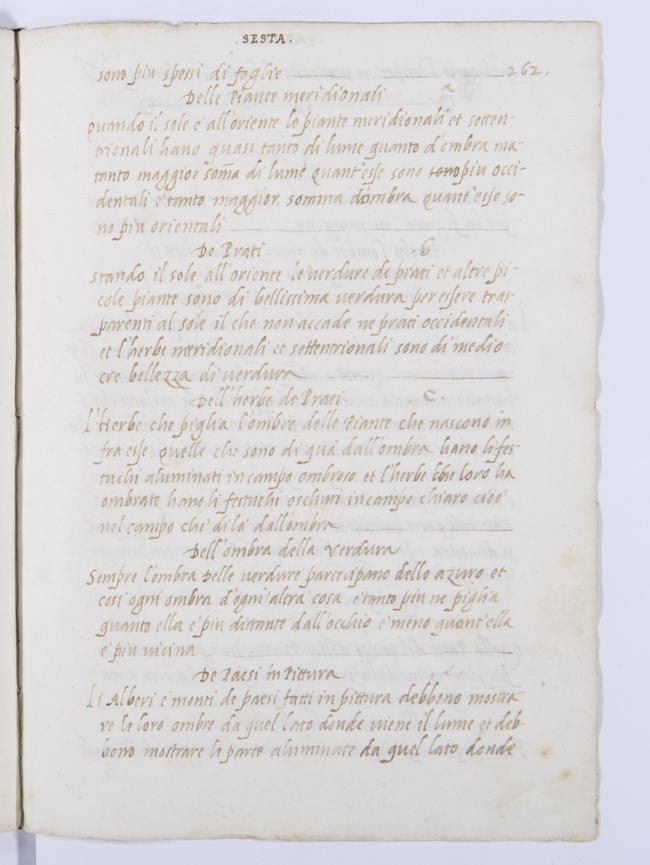 . SESTA .
sono piu spessi di foglie 262.
Delle Piante meridionali ã
Quando il sole e all'oriente le piante meridionali et setten-
trionali hano quasi tanto di lume quanto d'ombra ma-
tanto maggior som̃a di lume quant'esse sono sono piu occi-
dentali e tanto maggior somma d'ombra quant'esse so-
no piu orientali
De Prati b
Stando il sole all'oriente le verdure de prati et altre pi-
cole piante sono di bellissima verdura per essere tras-
parenti al sole il che non accade ne prati occidentali
et l'herbe meridionali et settentrionali sono di medio
cre bellezza di verdura
Dell'herbe de Prati. c
L'Herbe che piglia l'ombre delle Piante che nascono in
fra esse quelle che sono di quà dall'ombra hano li fes-
tuchi aluminati in campo ombroso et l'herbe che loro ha
ombrate hano li festuchi oschuri in campo chiaro cioe'
nel campo che' di là dall'ombra
Dell'ombra della verdura
Sempre l'ombra delle verdure partecipano dello azuro et
cosi ogni ombra d'ogni altra cosa e tanto piu ne piglia
quanto ella e piu distante dall'occhio e meno quant'ella
e piu vicina
De Paesi in Pittura
Li Alberi e monti de paesi fatti in pittura debbono mostra
re le loro ombre da quel lato donde viene il lume et deb
bono mostrare le parte aluminate da quel lato donde